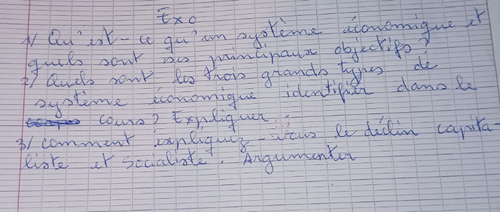 Exo
1/ Qu'est-ce qu'un système économique et
quels sont ses principaux objectifs?
2/ Quels sont les trois grands types de
système économique identifier dans le
cours? Expliquer.
3/ comment expliquez-vous le déclin capita-
liste et socialiste. Argumenter